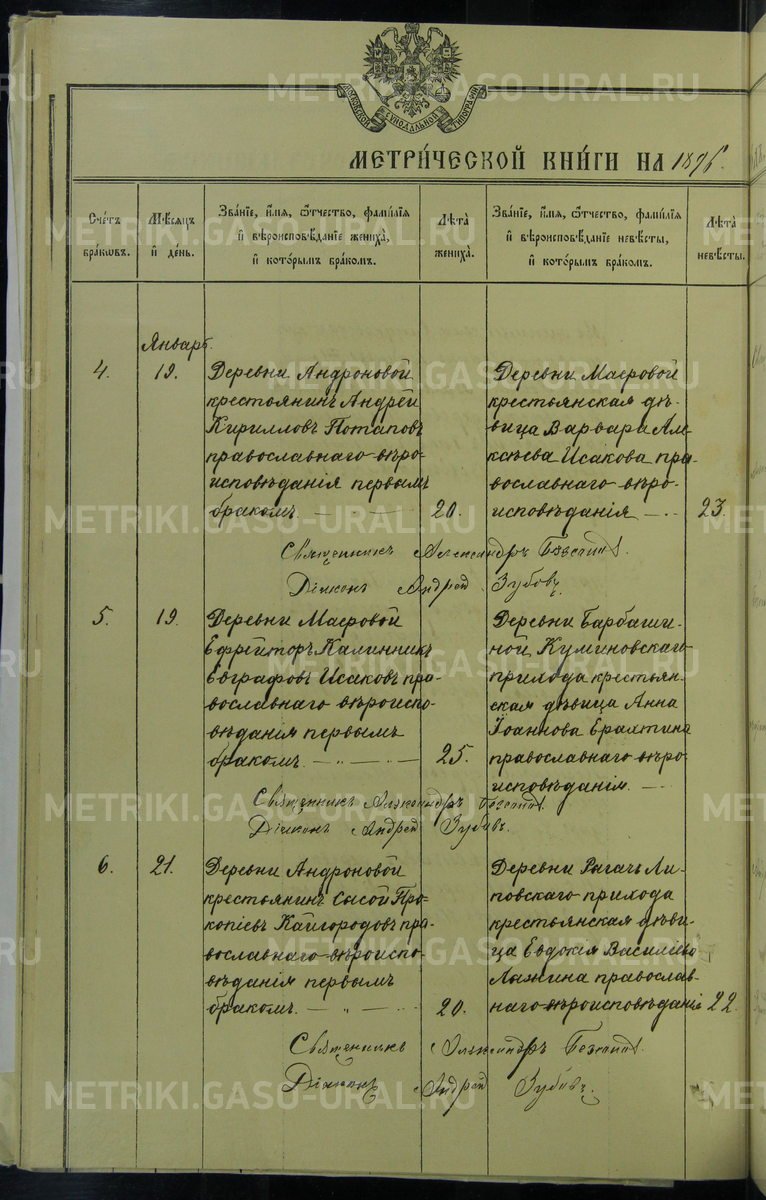 МОСКОВСКОЙ СѴНОДАЛЬНОЙ ТИПОГРАФІИ
МЕТРИ́ЧЕСКОЙ КНИ́ГИ НА 1896.
Сче́тъ
бра́кωвъ.
Мѣ́сяцъ
и҆ де́нь.
Зва́нїе, и҆́мя, ѻ҆́тчество, фамѝлїя
и҆ вѣроисповѣ́данїе жениха̀,
и҆ кото́рымъ бра́комъ.
Лѣ́та
жениха̀.
Зва́нїе, и҆́мя, ѻ҆́тчество, фамѝлїя
и҆ вѣроисповѣ́данїе невѣ́сты,
и҆ кото́рымъ бра́комъ.
Лѣ́та
невѣ́сты.
Январь.
4.
19.
Деревни Андроновой
крестьянинъ Андрей
Кирилловъ Потаповъ
православнаго вѣро-
исповѣданія первымъ
бракомъ.
20.
Деревни Маеровой
крестьянская дѣ-
вица Варвара Але-
ксѣева Исакова пра-
вославнаго вѣро-
исповѣданія
23.
Священникъ Александръ
Діаконъ Андрей Зубовъ.
5.
19.
Деревни Маеровой
Ефрейторъ Калинникъ
Евграфовъ Исаковъ пра-
вославнаго вѣроиспо-
вѣданія первымъ
бракомъ.
25.
Деревни Барбаши-
ной Куминовскаго
прихода крестьян-
ская дѣвица Анна
Іоаннова Ерахтина
православнаго вѣро-
исповѣданія.
Священникъ Александръ
Діаконъ Андрей Зубовъ.
6.
21.
Деревни Андроновой
крестьянинъ Сысой Про-
копіевъ Кайгородовъ пра-
вославнаго вѣроиспо-
вѣданія первымъ
бракомъ.
20.
Деревни Рагачъ Ли-
повскаго прихода
крестьянская дѣви-
ца Евдокія Василіева
православ-
наго вѣроисповѣданія
22.
Священникъ Александръ
Діаконъ Андрей Зубовъ.
METRIKI.GASO-URAL.RU